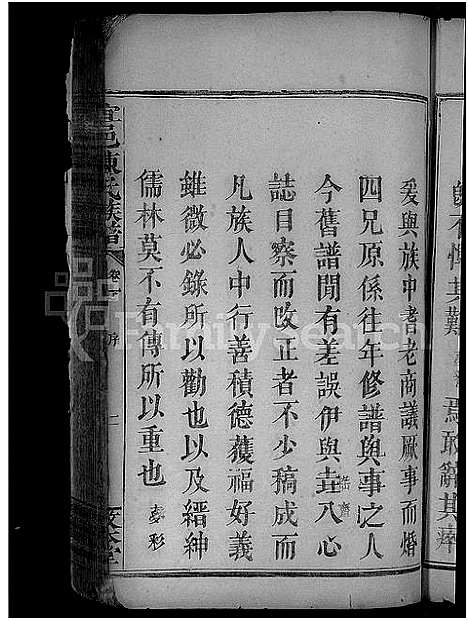 慨不憚其難 焉敢辭其瘁
爰與族中耆老商議厥事而婚
四兄原係往年修譜與事之人
今舊譜閒有差誤伊與圭八心
誌目察而改止者不少稿成而
凡族人中行善積德獲福好義
雖微必錄所以勸也以及縉紳
儒林莫不有傳所以重也
宜邑陳氏族譜 卷一 序 二
FamilySearch